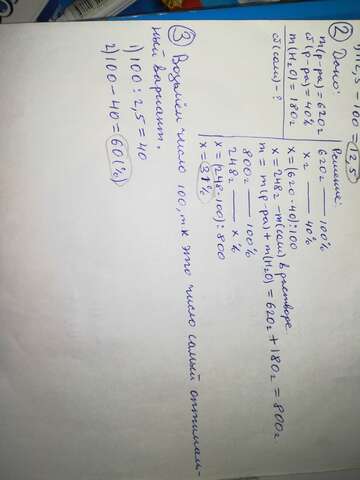 100 = 12,5
② Дано:
m(р-ра) = 620г
ω(р-ра) = 40%
m(H₂O) = 180г
ω(сам) - ?
Решение:
620г — 100%
xг — 40%
x = (620·40):100
x = 248г - m(сам) в растворе
m = m(р-ра) + m(H₂O) = 620г + 180г = 800г
800г — 100%
248г — x%
x = (248·100):800
x = 31%
③ Возьмём число 100, т.к это число самый оптималь-
ный вариант.
1) 100 : 2,5 = 40
2) 100 - 40 = 60(%)